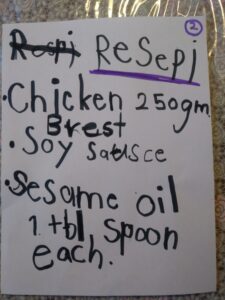 2
Respi Resepi
• Chicken 250gm
Brest
• Soy Sausce
• Sesame oil
1 tbl spoon
each.